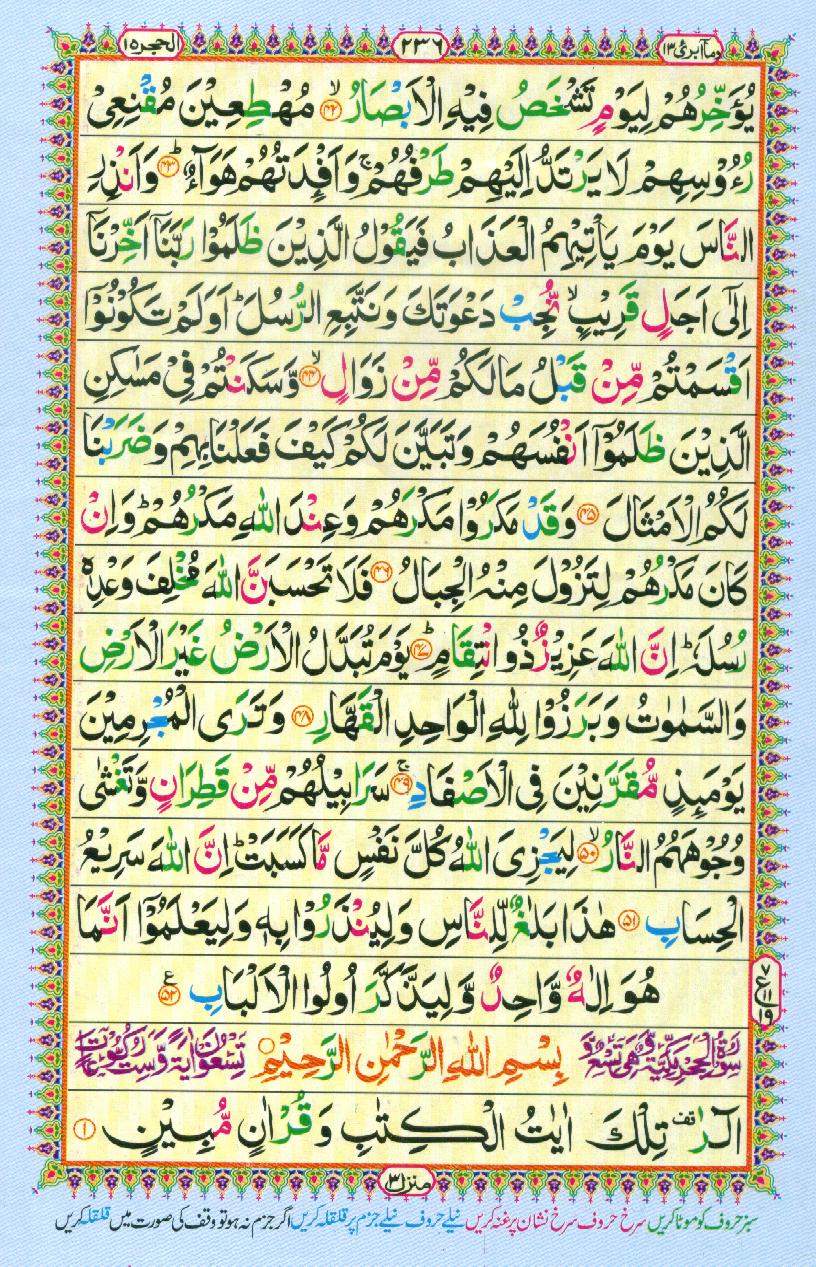 وما ابرئ ١٣
٢٣٦
الحجر ١٥
يُؤَخِّرُهُمْ لِيَوْمٍ تَشْخَصُ فِيْهِ الْاَبْصَارُ ۙ‏﴿۴۲﴾ مُهْطِعِيْنَ مُقْنِعِىْ
رُءُوْسِهِمْ لَا يَرْتَدُّ اِلَيْهِمْ طَرْفُهُمْ ۚ وَاَفْـِٕدَتُهُمْ هَوَآءٌ ؕ‏﴿۴۳﴾ وَاَنْذِرِ
النَّاسَ يَوْمَ يَاْتِيْهِمُ الْعَذَابُ فَيَقُوْلُ الَّذِيْنَ ظَلَمُوْا رَبَّنَاۤ اَخِّرْنَاۤ
اِلٰٓى اَجَلٍ قَرِيْبٍ ۙ نُّجِبْ دَعْوَتَكَ وَنَتَّبِعِ الرُّسُلَ ؕ اَوَلَمْ تَكُوْنُوْۤا
اَقْسَمْتُمْ مِّنْ قَبْلُ مَا لَكُمْ مِّنْ زَوَالٍ ۙ‏﴿۴۴﴾ وَّسَكَنْتُمْ فِىْ مَسٰكِنِ
الَّذِيْنَ ظَلَمُوْۤا اَنْفُسَهُمْ وَتَبَيَّنَ لَكُمْ كَيْفَ فَعَلْنَا بِهِمْ وَضَرَبْنَا
لَكُمُ الْاَمْثَالَ ‏﴿۴۵﴾ وَقَدْ مَكَرُوْا مَكْرَهُمْ وَعِنْدَ اللّٰهِ مَكْرُهُمْ ؕ وَاِنْ
كَانَ مَكْرُهُمْ لِتَزُوْلَ مِنْهُ الْجِبَالُ ‏﴿۴۶﴾ فَلَا تَحْسَبَنَّ اللّٰهَ مُخْلِفَ وَعْدِهٖ
رُسُلَهٗ ؕ اِنَّ اللّٰهَ عَزِيْزٌ ذُو انْتِقَامٍ ؕ‏﴿۴۷﴾ يَوْمَ تُبَدَّلُ الْاَرْضُ غَيْرَ الْاَرْضِ
وَالسَّمٰوٰتُ وَبَرَزُوْا لِلّٰهِ الْوَاحِدِ الْقَهَّارِ ‏﴿۴۸﴾ وَتَرَى الْمُجْرِمِيْنَ
يَوْمَٮِٕذٍ مُّقَرَّنِيْنَ فِى الْاَصْفَادِ ۚ‏﴿۴۹﴾ سَرَابِيْلُهُمْ مِّنْ قَطِرَانٍ وَّتَغْشٰى
وُجُوْهَهُمُ النَّارُ ۙ‏﴿۵۰﴾ لِيَجْزِىَ اللّٰهُ كُلَّ نَفْسٍ مَّا كَسَبَتْ ؕ اِنَّ اللّٰهَ سَرِيْعُ
الْحِسَابِ ‏﴿۵۱﴾ هٰذَا بَلٰغٌ لِّلنَّاسِ وَلِيُنْذَرُوْا بِهٖ وَلِيَعْلَمُوْۤا اَنَّمَا
هُوَ اِلٰهٌ وَّاحِدٌ وَّلِيَذَّكَّرَ اُولُوا الْاَلْبَابِ ‏﴿۵۲﴾ ع
٧ ع ١١ ١٩
بِسْمِ اللّٰهِ الرَّحْمٰنِ الرَّحِيْمِ
الٓرٰ ۟قف تِلْكَ اٰيٰتُ الْكِتٰبِ وَقُرْاٰنٍ مُّبِيْنٍ ‏﴿۱﴾
منزل ٣
سبز حروف کو موٹا کریں سرخ حروف سرخ نشان پر غنہ کریں نیلے حروف نیلے جزم پر قلقلہ کریں اگر جزم نہ ہو تو وقف کی صورت میں قلقلہ کریں